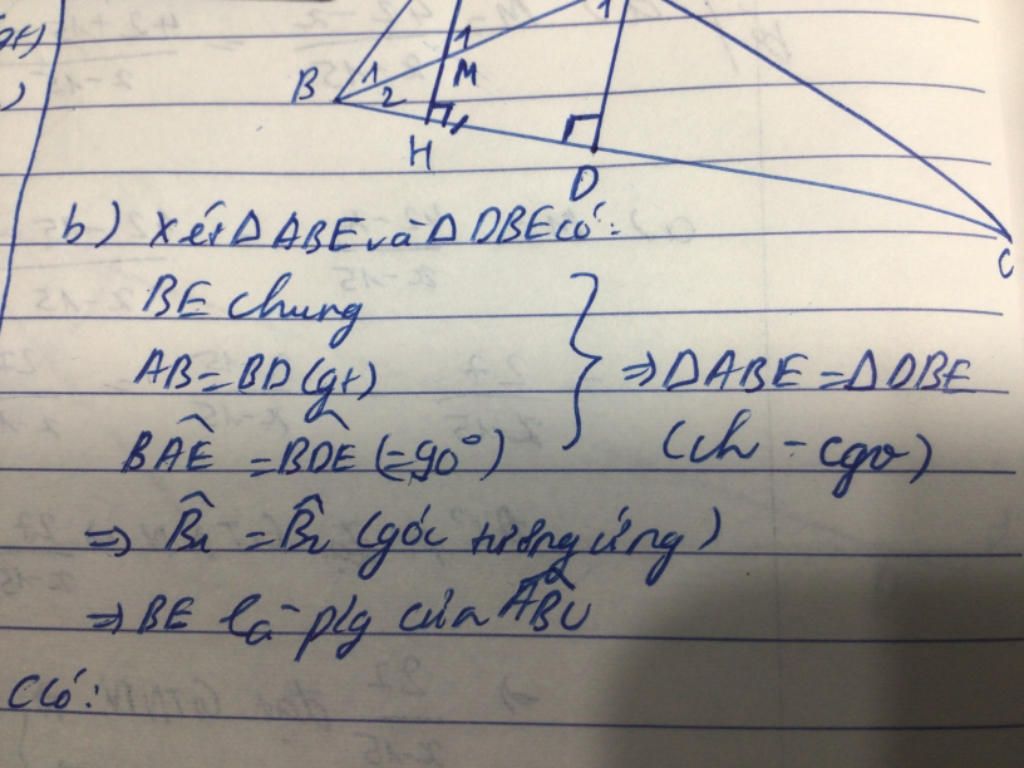 gt)
1
1
B 1 2 M
H
D
C
b) Xét Δ ABE và Δ DBE có:
BE chung
AB = BD (gt) => Δ ABE = Δ DBE
BÂE = BD̂E (= 90°) (ch - cgv)
=> B̂1 = B̂2 (góc tương ứng)
=> BE là p/g của AB̂C
Có: